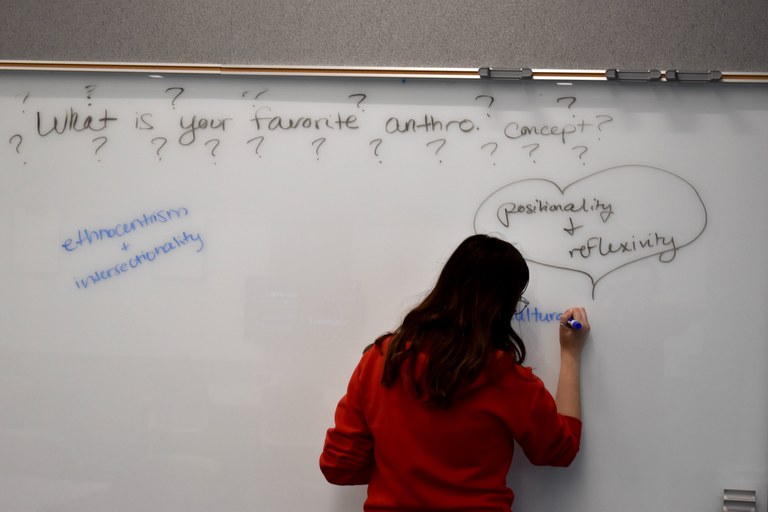 ? ? ? ? ? ? ?
What is your favorite anthro. concept?
? ? ? ? ? ? ? ? ? ? ?
positionality
+
reflexivity
ethnocentrism
+
intersectionality